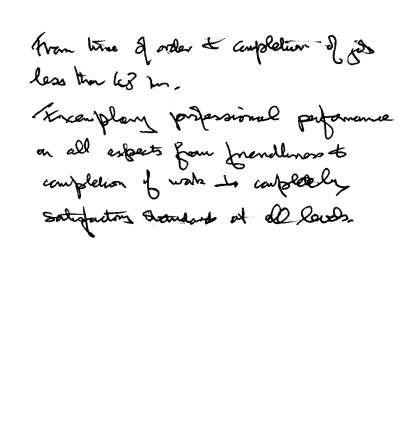 From time of order to completion of job
less than 48 hrs.
Exemplary professional performance
on all aspects from friendliness to
completion of work to completely
satisfactory standard at all levels.